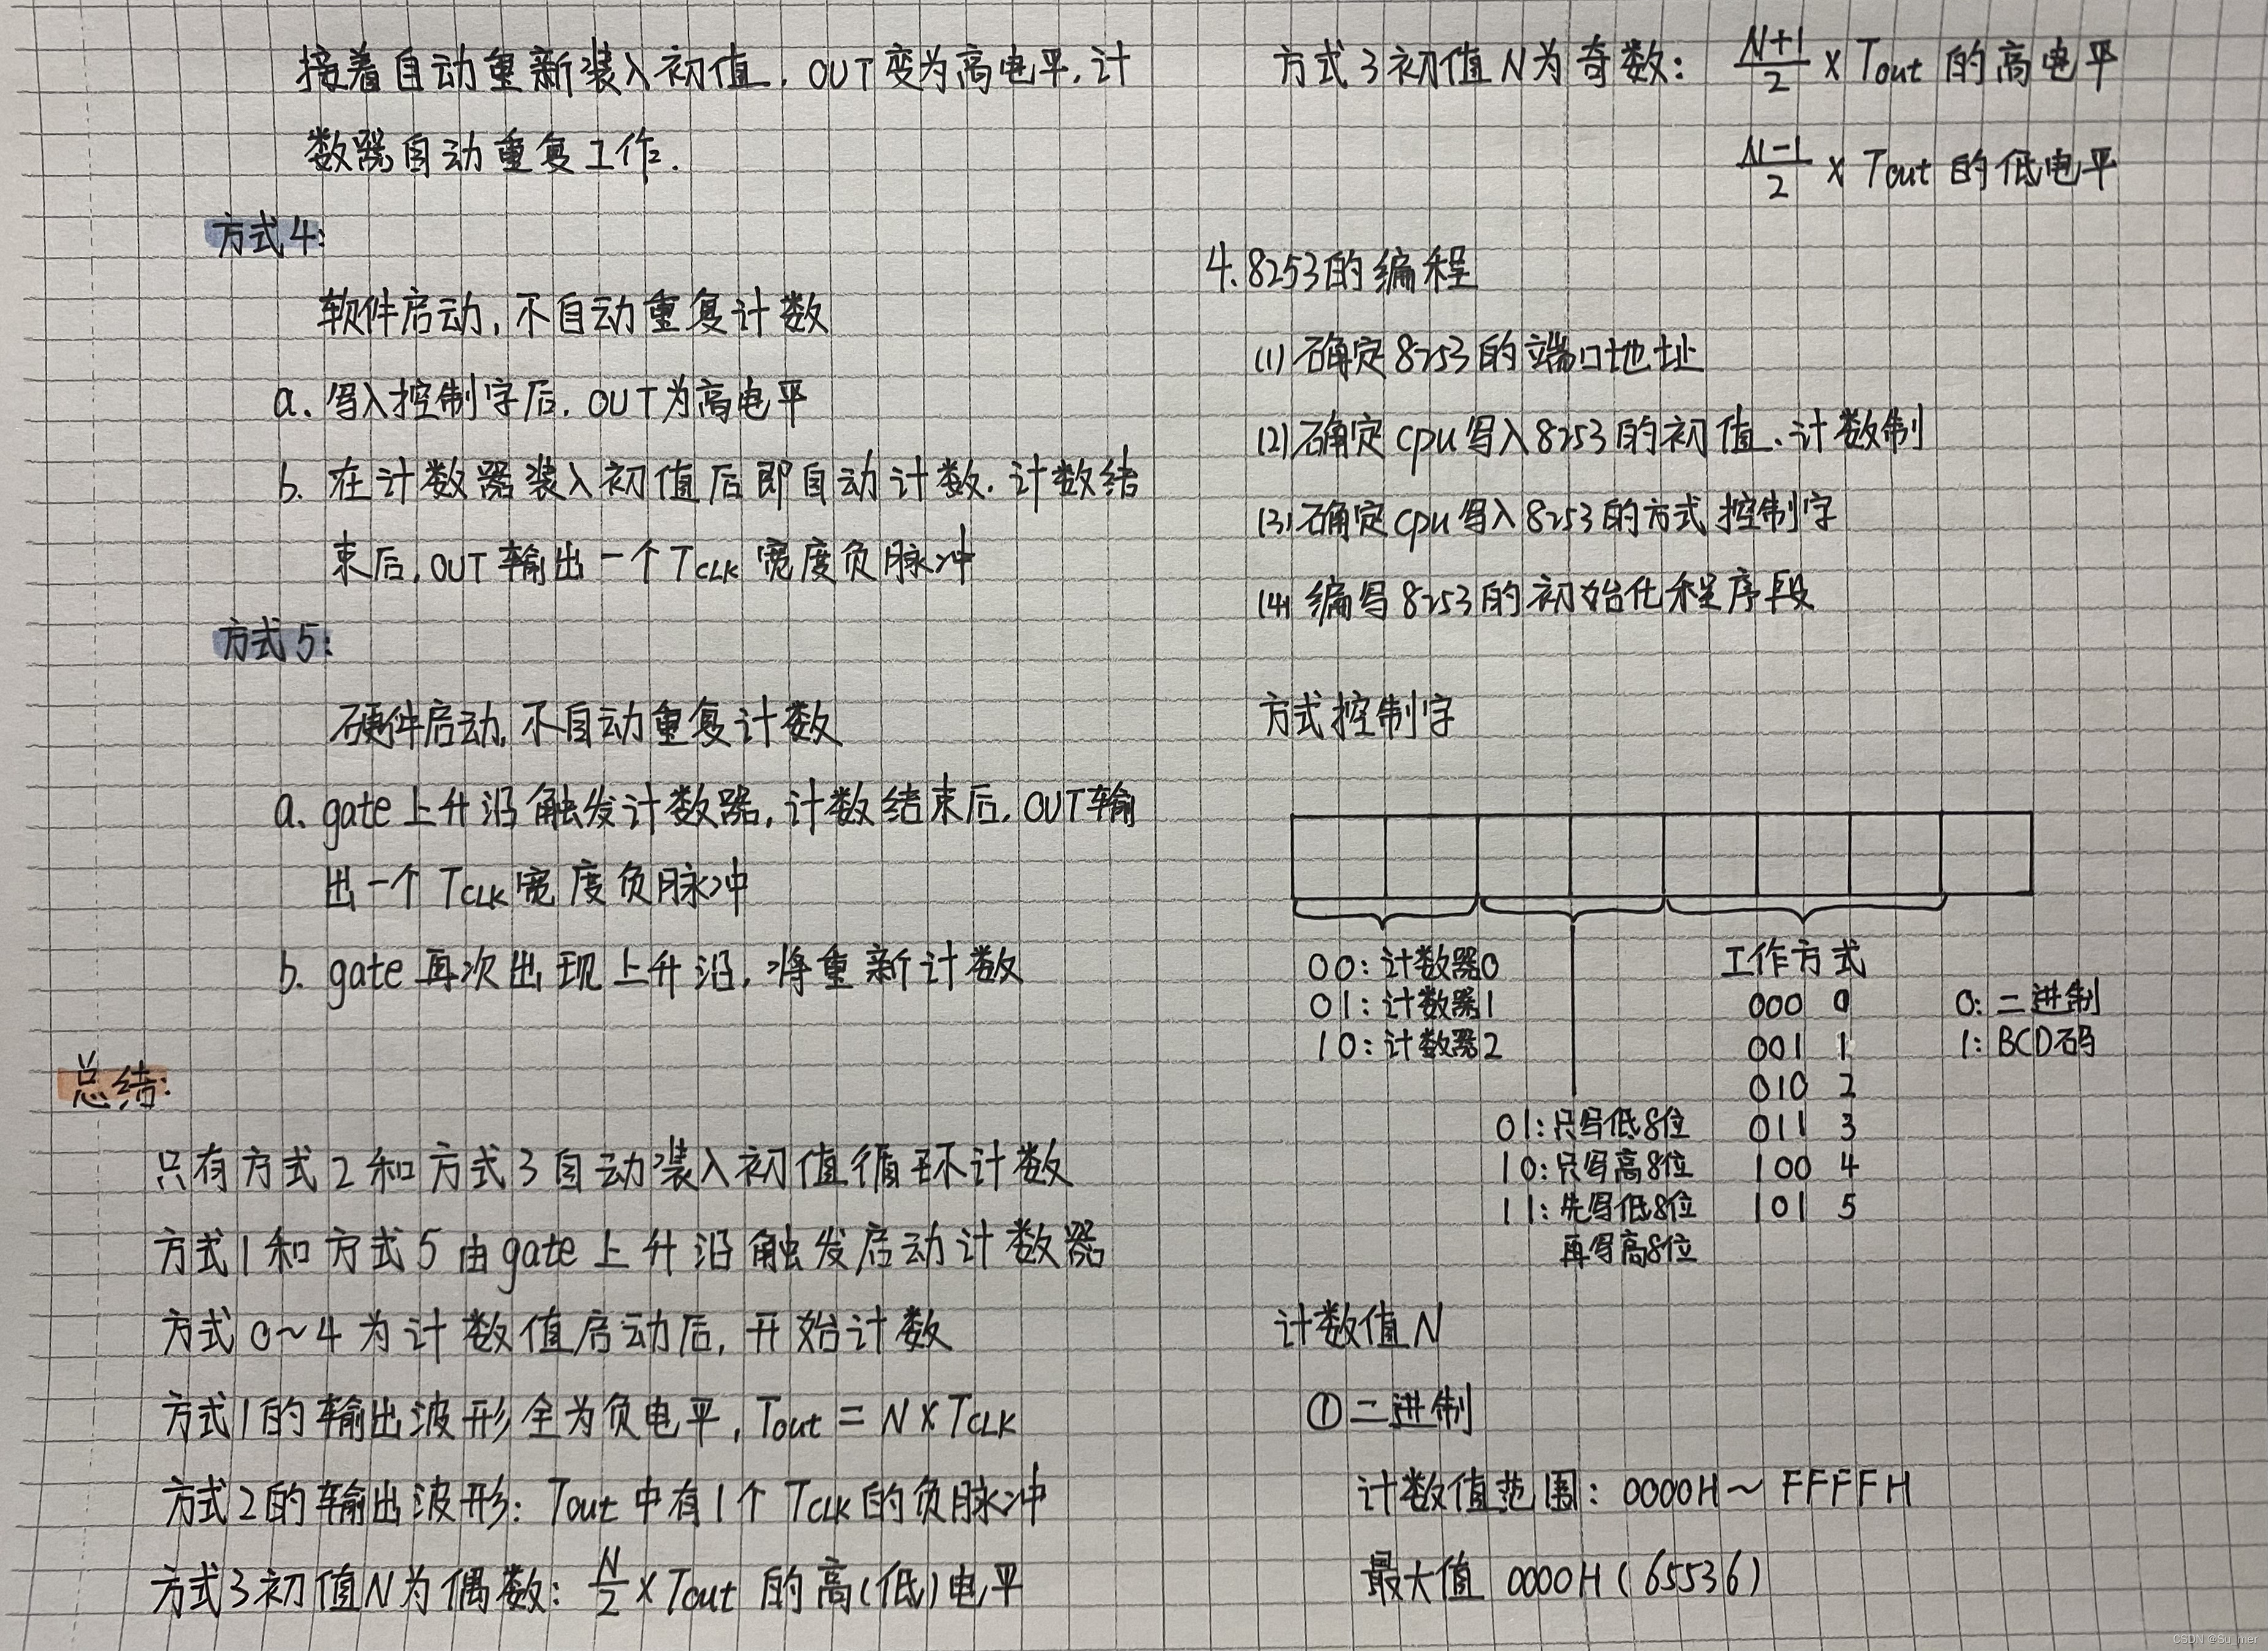 接着自动重新装入初值，OUT变为高电平，计
数器自动重复工作.
方式4:
软件启动，不自动重复计数
a. 写入控制字后，OUT为高电平
b. 在计数器装入初值后即自动计数，计数结
束后，OUT输出一个TCLK宽度负脉冲
方式5:
硬件启动，不自动重复计数
a. gate上升沿触发计数器，计数结束后，OUT输
出一个TCLK宽度负脉冲
b. gate再次出现上升沿，将重新计数
总结:
只有方式2和方式3自动装入初值循环计数
方式1和方式5由gate上升沿触发启动计数器
方式0~4为计数值启动后，开始计数
方式1的输出波形全为负电平，Tout = N×TCLK
方式2的输出波形: Tout中有1个TCLK的负脉冲
方式3初值N为偶数: N/2 × Tout 的高(低)电平
方式3初值N为奇数: N+1/2 × Tout 的高电平
N-1/2 × Tout 的低电平
4. 8253的编程
(1) 确定8253的端口地址
(2) 确定cpu写入8253的初值、计数制
(3) 确定cpu写入8253的方式控制字
(4) 编写8253的初始化程序段
方式控制字
00: 计数器0
01: 计数器1
10: 计数器2
01: 只写低8位
10: 只写高8位
11: 先写低8位
再写高8位
工作方式
000 0
001 1
010 2
011 3
100 4
101 5
0: 二进制
1: BCD码
计数值N
①二进制
计数值范围: 0000H~FFFFH
最大值 0000H(65536)
CSDN @Su_mei